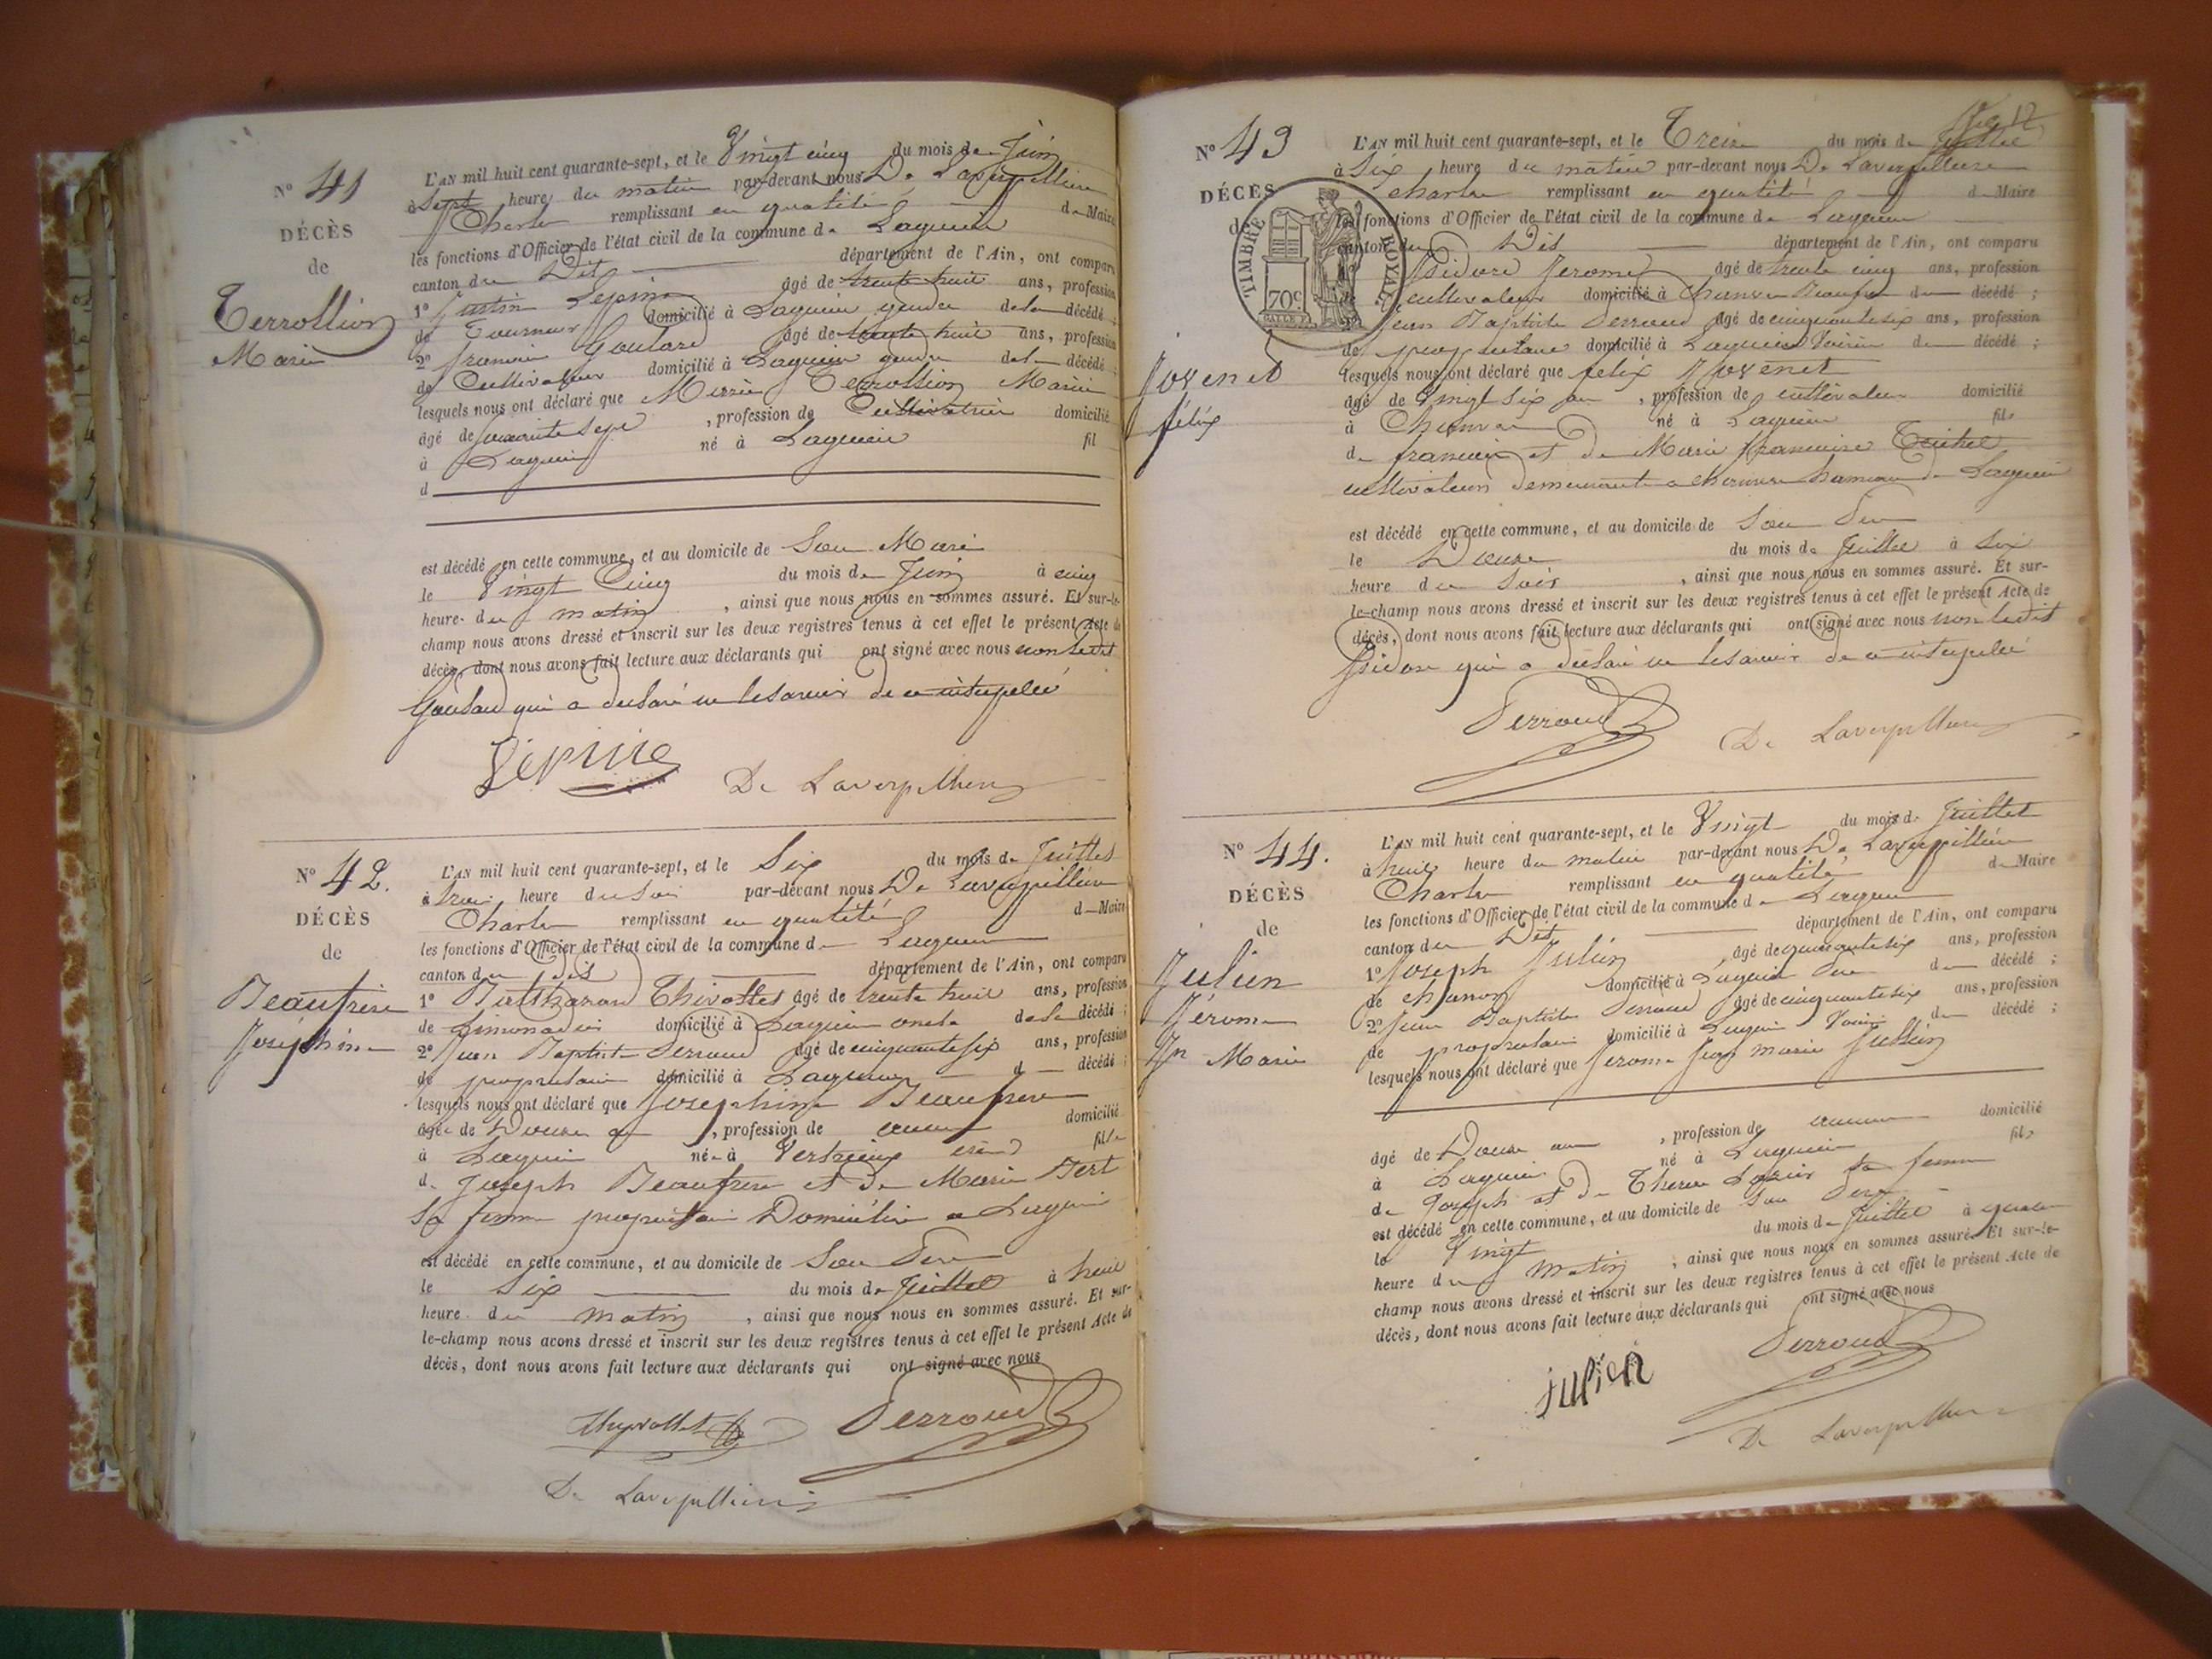 N° 41
DÉCÈS
de
Terrollion
Marie
L'AN mil huit cent quarante-sept, et le Vingt cinq du mois de Juin
à Sept heure du matin par-devant nous De Laverpilliere
Charles remplissant en qualité de Maire
les fonctions d'Officier de l'état civil de la commune de Lagnieu
canton du Dit département de l'Ain, ont comparu
1° Justin Lépine âgé de trente huit ans, profession
de Tourneur domicilié à Lagnieu gendre de la décédé ;
2° francois Goulard âgé de trente huit ans, profession
de Cultivateur domicilié à Lagnieu gendre de la décédé ;
lesquels nous ont déclaré que Terrollion Marie
âgé de soixante sept , profession de Cultivatrice domicilié
à Lagnieu né à Lagnieu fil
d
est décédé en cette commune, et au domicile de Son Mari
le Vingt Cinq du mois de Juin à cinq
heure du matin , ainsi que nous nous en sommes assuré. Et sur-le-
champ nous avons dressé et inscrit sur les deux registres tenus à cet effet le présent Acte de
décès, dont nous avons fait lecture aux déclarants qui ont signé avec nous non ledit
Goulard qui a declaré ne le savoir de ce interpelé
Lépine De Laverpilliere
N° 42.
DÉCÈS
de
Beaufrère
Joséphine
L'AN mil huit cent quarante-sept, et le Six du mois de Juillet
à trois heure du soir par-devant nous De Laverpilliere
Charles remplissant en qualité de Maire
les fonctions d'Officier de l'état civil de la commune de Lagnieu
canton du dit département de l'Ain, ont comparu
1° Balthazard Thivollet âgé de trente huit ans, profession
de Limonadier domicilié à Lagnieu oncle de la décédé ;
2° Jean Baptiste Perroud âgé de cinquante six ans, profession
de proprietaire domicilié à Lagnieu d décédé ;
lesquels nous ont déclaré que Josephine Beaufrere
âgée de Douze an , profession de aucune domicilié
à Lagnieu née à Vertrieux fille
de Joseph Beaufrere et de Marie Bert
Sa femme proprietaire Domicilié a Lagnieu
est décédé en cette commune, et au domicile de Son Pere
le Six du mois de Juillet à huit
heure du matin , ainsi que nous nous en sommes assuré. Et sur-
le-champ nous avons dressé et inscrit sur les deux registres tenus à cet effet le présent Acte de
décès, dont nous avons fait lecture aux déclarants qui ont signé avec nous
Thyvollet Perroud
De Laverpilliere
12
N° 43
DÉCÈS
de
TIMBRE ROYAL
70c
Jovenet
félix
L'AN mil huit cent quarante-sept, et le Treize du mois de Juillet
à Six heure du matin par-devant nous De Laverpilliere
Charles remplissant en qualité de Maire
les fonctions d'Officier de l'état civil de la commune de Lagnieu
canton du Dit département de l'Ain, ont comparu
Isidore Jerome âgé de trente cinq ans, profession
de cultivateur domicilié à Chanves Beaufrere du décédé ;
Jean Baptiste Perroud âgé de cinquante six ans, profession
de proprietaire domicilié à Lagnieu Voisin du décédé ;
lesquels nous ont déclaré que félix Jovenet
âgé de Vingt six an , profession de cultivateur domicilié
à Chanves né à Lagnieu fils
de francois et de Marie francoise
cultivateurs demeurant a hameau de Lagnieu
est décédé en cette commune, et au domicile de Son Pere
le Douze du mois de Juillet à Six
heure du Soir , ainsi que nous nous en sommes assuré. Et sur-
le-champ nous avons dressé et inscrit sur les deux registres tenus à cet effet le présent Acte de
décès, dont nous avons fait lecture aux déclarants qui ont signé avec nous non ledit
Isidore qui a declaré ne le savoir de ce interpelé
Perroud De Laverpilliere
N° 44.
DÉCÈS
de
Julien
Jérome
Jn Marie
L'AN mil huit cent quarante-sept, et le Vingt du mois de Juillet
à huit heure du matin par-devant nous De Laverpilliere
Charles remplissant en qualité de Maire
les fonctions d'Officier de l'état civil de la commune de Lagnieu
canton du Dit département de l'Ain, ont comparu
1° Joseph Julien âgé de quarante six ans, profession
de domicilié à Lagnieu Pere du décédé ;
2° Jean Baptiste Perroud âgé de cinquante six ans, profession
de proprietaire domicilié à Lagnieu Voisin du décédé ;
lesquels nous ont déclaré que Jerome Jean Marie Jullien
âgé de Douze ans , profession de aucune domicilié
à Lagnieu né à Lagnieu fils
de Joseph et de Therese sa femme
est décédé en cette commune, et au domicile de Son Pere
le Vingt du mois de Juillet à quatre
heure du matin , ainsi que nous nous en sommes assuré. Et sur-le-
champ nous avons dressé et inscrit sur les deux registres tenus à cet effet le présent Acte de
décès, dont nous avons fait lecture aux déclarants qui ont signé avec nous
julien Perroud
De Laverpilliere